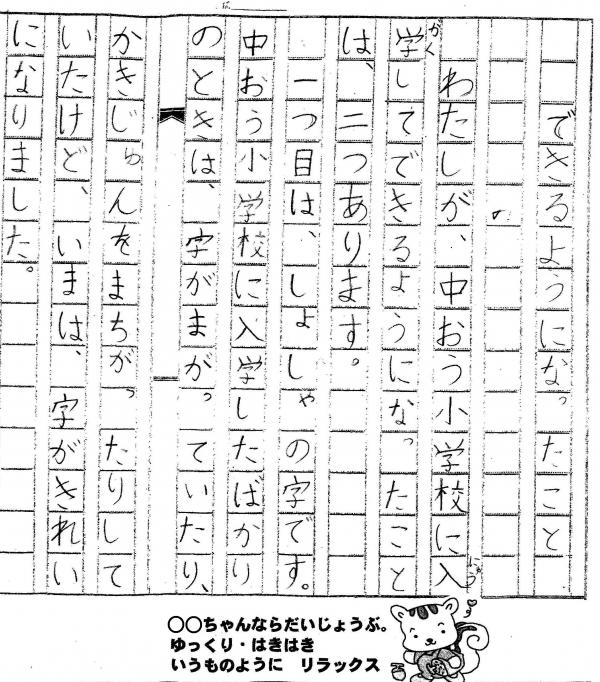 できるようになったこと
わたしが、中おう小学校に入
にゅう
学してできるようになったこと
がく
は、二つあります。
一つ目は、しょしゃの字です。
中おう小学校に入学したばかり
のときは、字がまがっていたり、
かきじゅんをまちがったりして
いたけど、いまは、字がきれい
になりました。
〇〇ちゃんならだいじょうぶ。
ゆっくり・はきはき
いうものように　リラックス